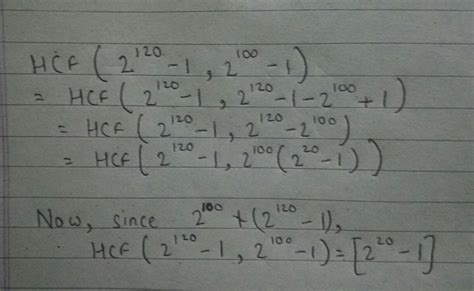 HCF ( 2^120 - 1 , 2^100 - 1 )
= HCF ( 2^120 - 1 , 2^120 - 1 - 2^100 + 1 )
= HCF ( 2^120 - 1 , 2^120 - 2^100 )
= HCF ( 2^120 - 1 , 2^100 ( 2^20 - 1 ) )
Now, since 2^100 + ( 2^120 - 1 ) ,
HCF ( 2^120 - 1 , 2^100 - 1 ) = [ 2^20 - 1 ]